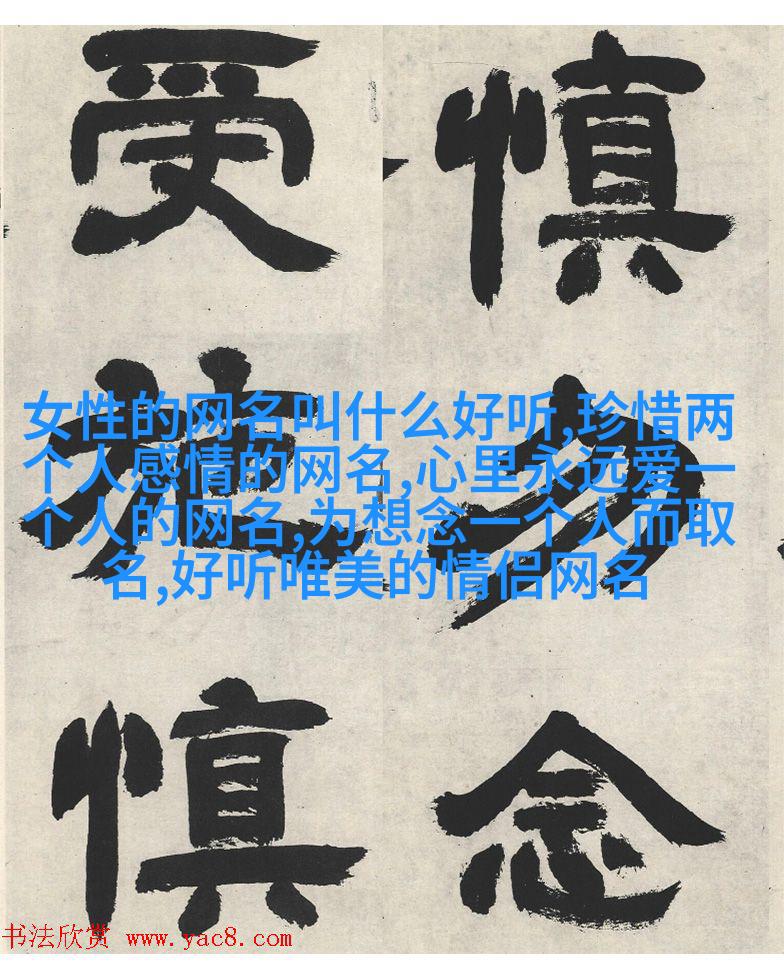 慎勿念
受施慎
女性的网名叫什么好听,珍惜两
个人感情的网名,心里永远爱一
个人的网名,为想念一个人而取
名,好听唯美的情侣网名
书法欣赏 www.yac8.com